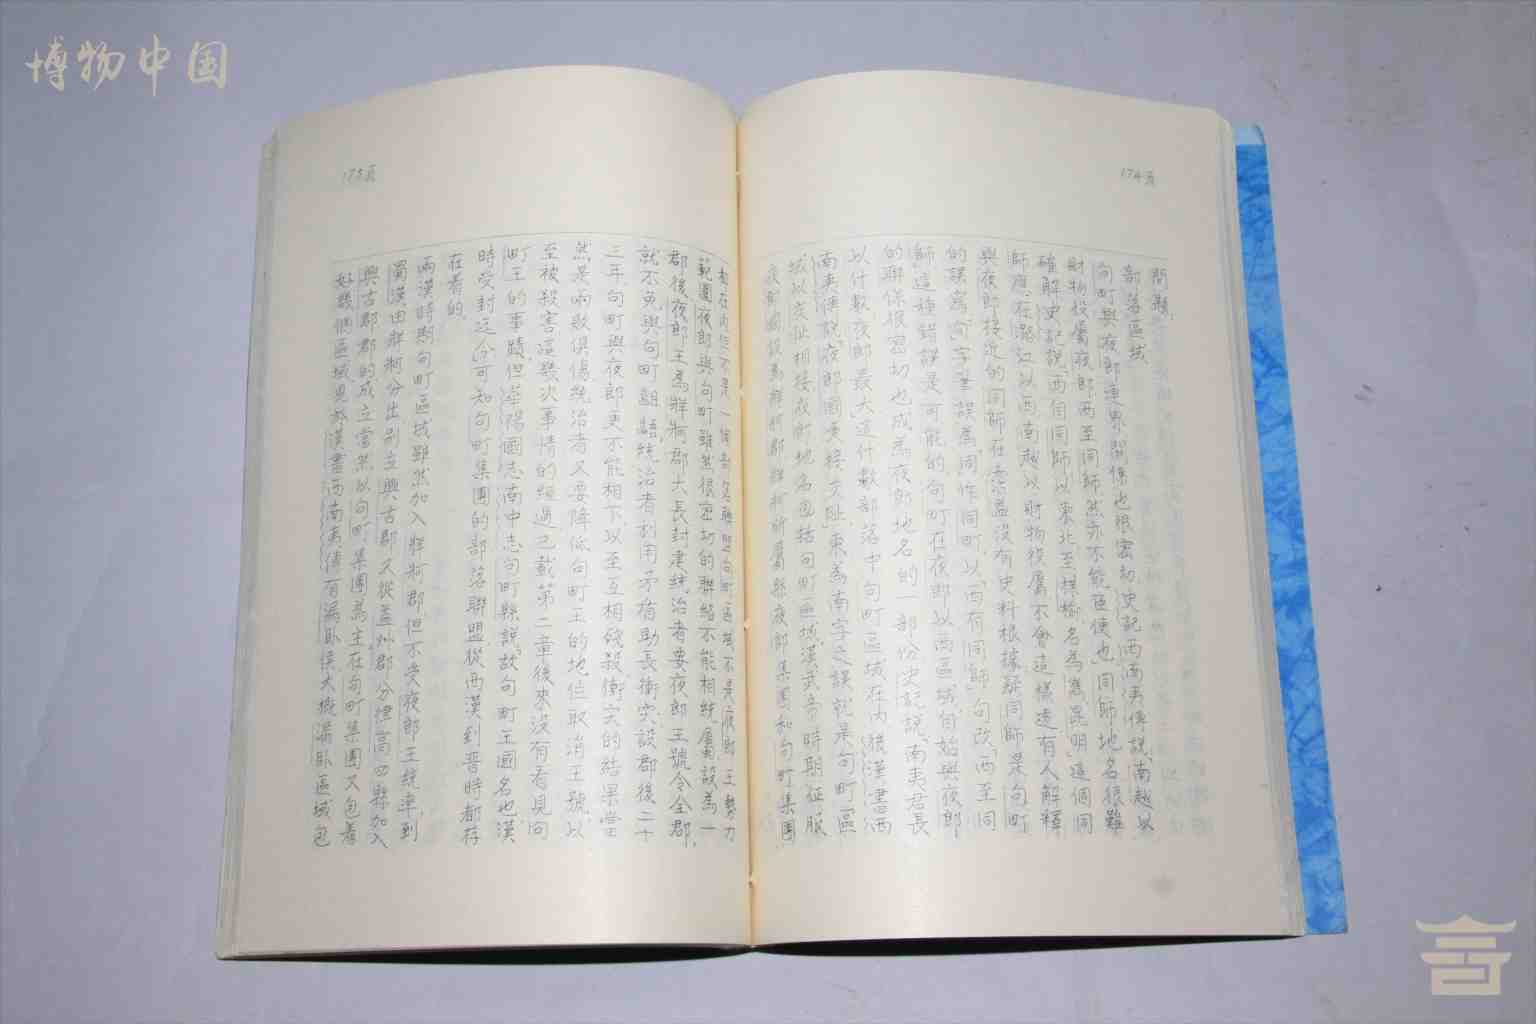 博物中国
174頁
問題
部落區域
句町與夜郎連界關係也很密切史記西南夷傳說南越以
財物役屬夜郎西至同師然亦不能臣使也同師地名很難
確解史記說西自同師以東北至楪榆名為嶲昆明這個同
師應在潞江以西南越以財物役屬不會這樣遠有人解釋
與夜郎接近的同師在 沒有史料根據疑同師是句町
的誤寫句字筆誤為同作同町以西有同師句改西至同
師這種錯誤是可能的句町在夜郎以西區域自始與夜郎
的聯係很密切也成為夜郎地名的一部份史記說南夷君長
以什數夜郎最大這什數部落中句町區域在內後漢書西
南夷傳說夜郎國東接交阯東為南字之誤就是句町區
域以交趾相接夜郎地名包括句町區域漢武帝時期征服
夜郎國設為牂牁郡牂牁所屬縣夜郎集團和句町集團
175頁
都在內但不是一個部落聯盟句町區域不是夜郎王勢力
範圍夜郎與句町雖然很密切的聯絡不能相統屬設為一
郡後夜郎王為牂牁郡大長封建統治者要夜郎王號令全郡
就不免與句町齟齬統治者利用矛盾助長衝突設郡後二十
三年句町與夜郎更不能相下以至互相殘殺衝突的結果當
然是兩敗俱傷統治者又要降低句町王的地位取消王號以
至被殺害這幾次事情的經過已載第二章後來沒有看見句
町王的事蹟但華陽國志南中志句町縣說故句町王國名也漢
時受封迄今可知句町集團的部落聯盟從西漢到晉時都存
在着的
兩漢時期句町區域雖然加入牂牁郡但不受夜郎王統率到
蜀漢由牂牁分出別立興古郡又從益州郡分 高四縣加入
興古郡郡的成立當然以句町集團為主在句町集團又包着
好幾個區域見於漢書西南夷傳有漏臥侯大概漏臥區域包